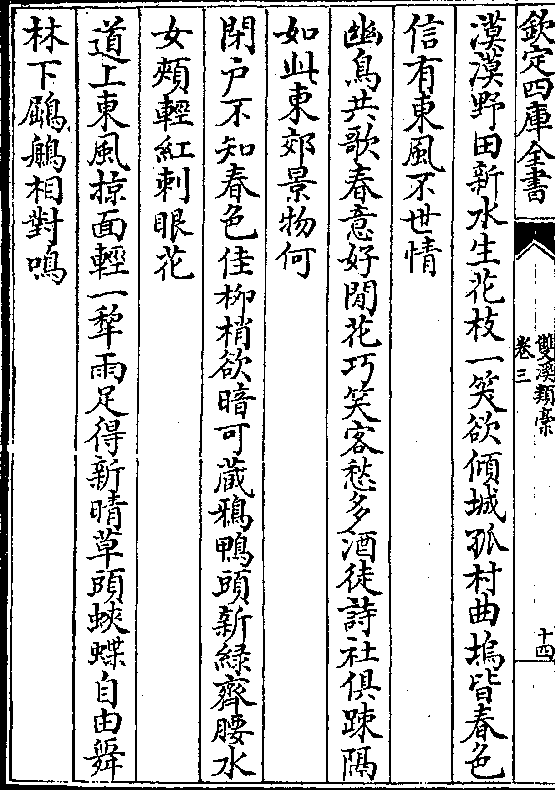 欽定四庫全書
雙溪類藁
卷三
十四
漠漠野田新水生花枝一笑欲傾城孤村曲塢皆春色
信有東風不世情
幽鳥共歌春意好閒花巧笑客愁多酒徒詩社俱踈隔
如此東郊景物何
閉户不知春色佳柳梢欲暗可蔵鴉鴨頭新緑齊腰水
女頰輕紅刺眼花
道上東風掠面輕一犂雨足得新晴草頭蛺蝶自由舞
林下鸊鵜相對鳴